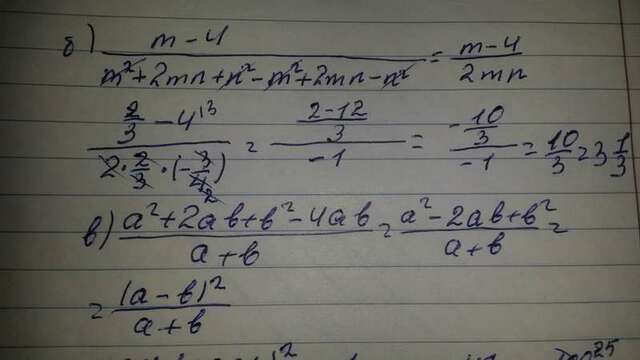 б) (m-4)/(m²+2mn+n²-m²+2mn-n²) = (m-4)/(2mn)
(2/3 - 4^{13})/(2·2/3·(-3/4₂)) = ((2-12)/3)/(-1) = (-10/3)/(-1) = 10/3 = 3 1/3
в) (a²+2ab+b²-4ab)/(a+b) = (a²-2ab+b²)/(a+b) =
= (a-b)²/(a+b)